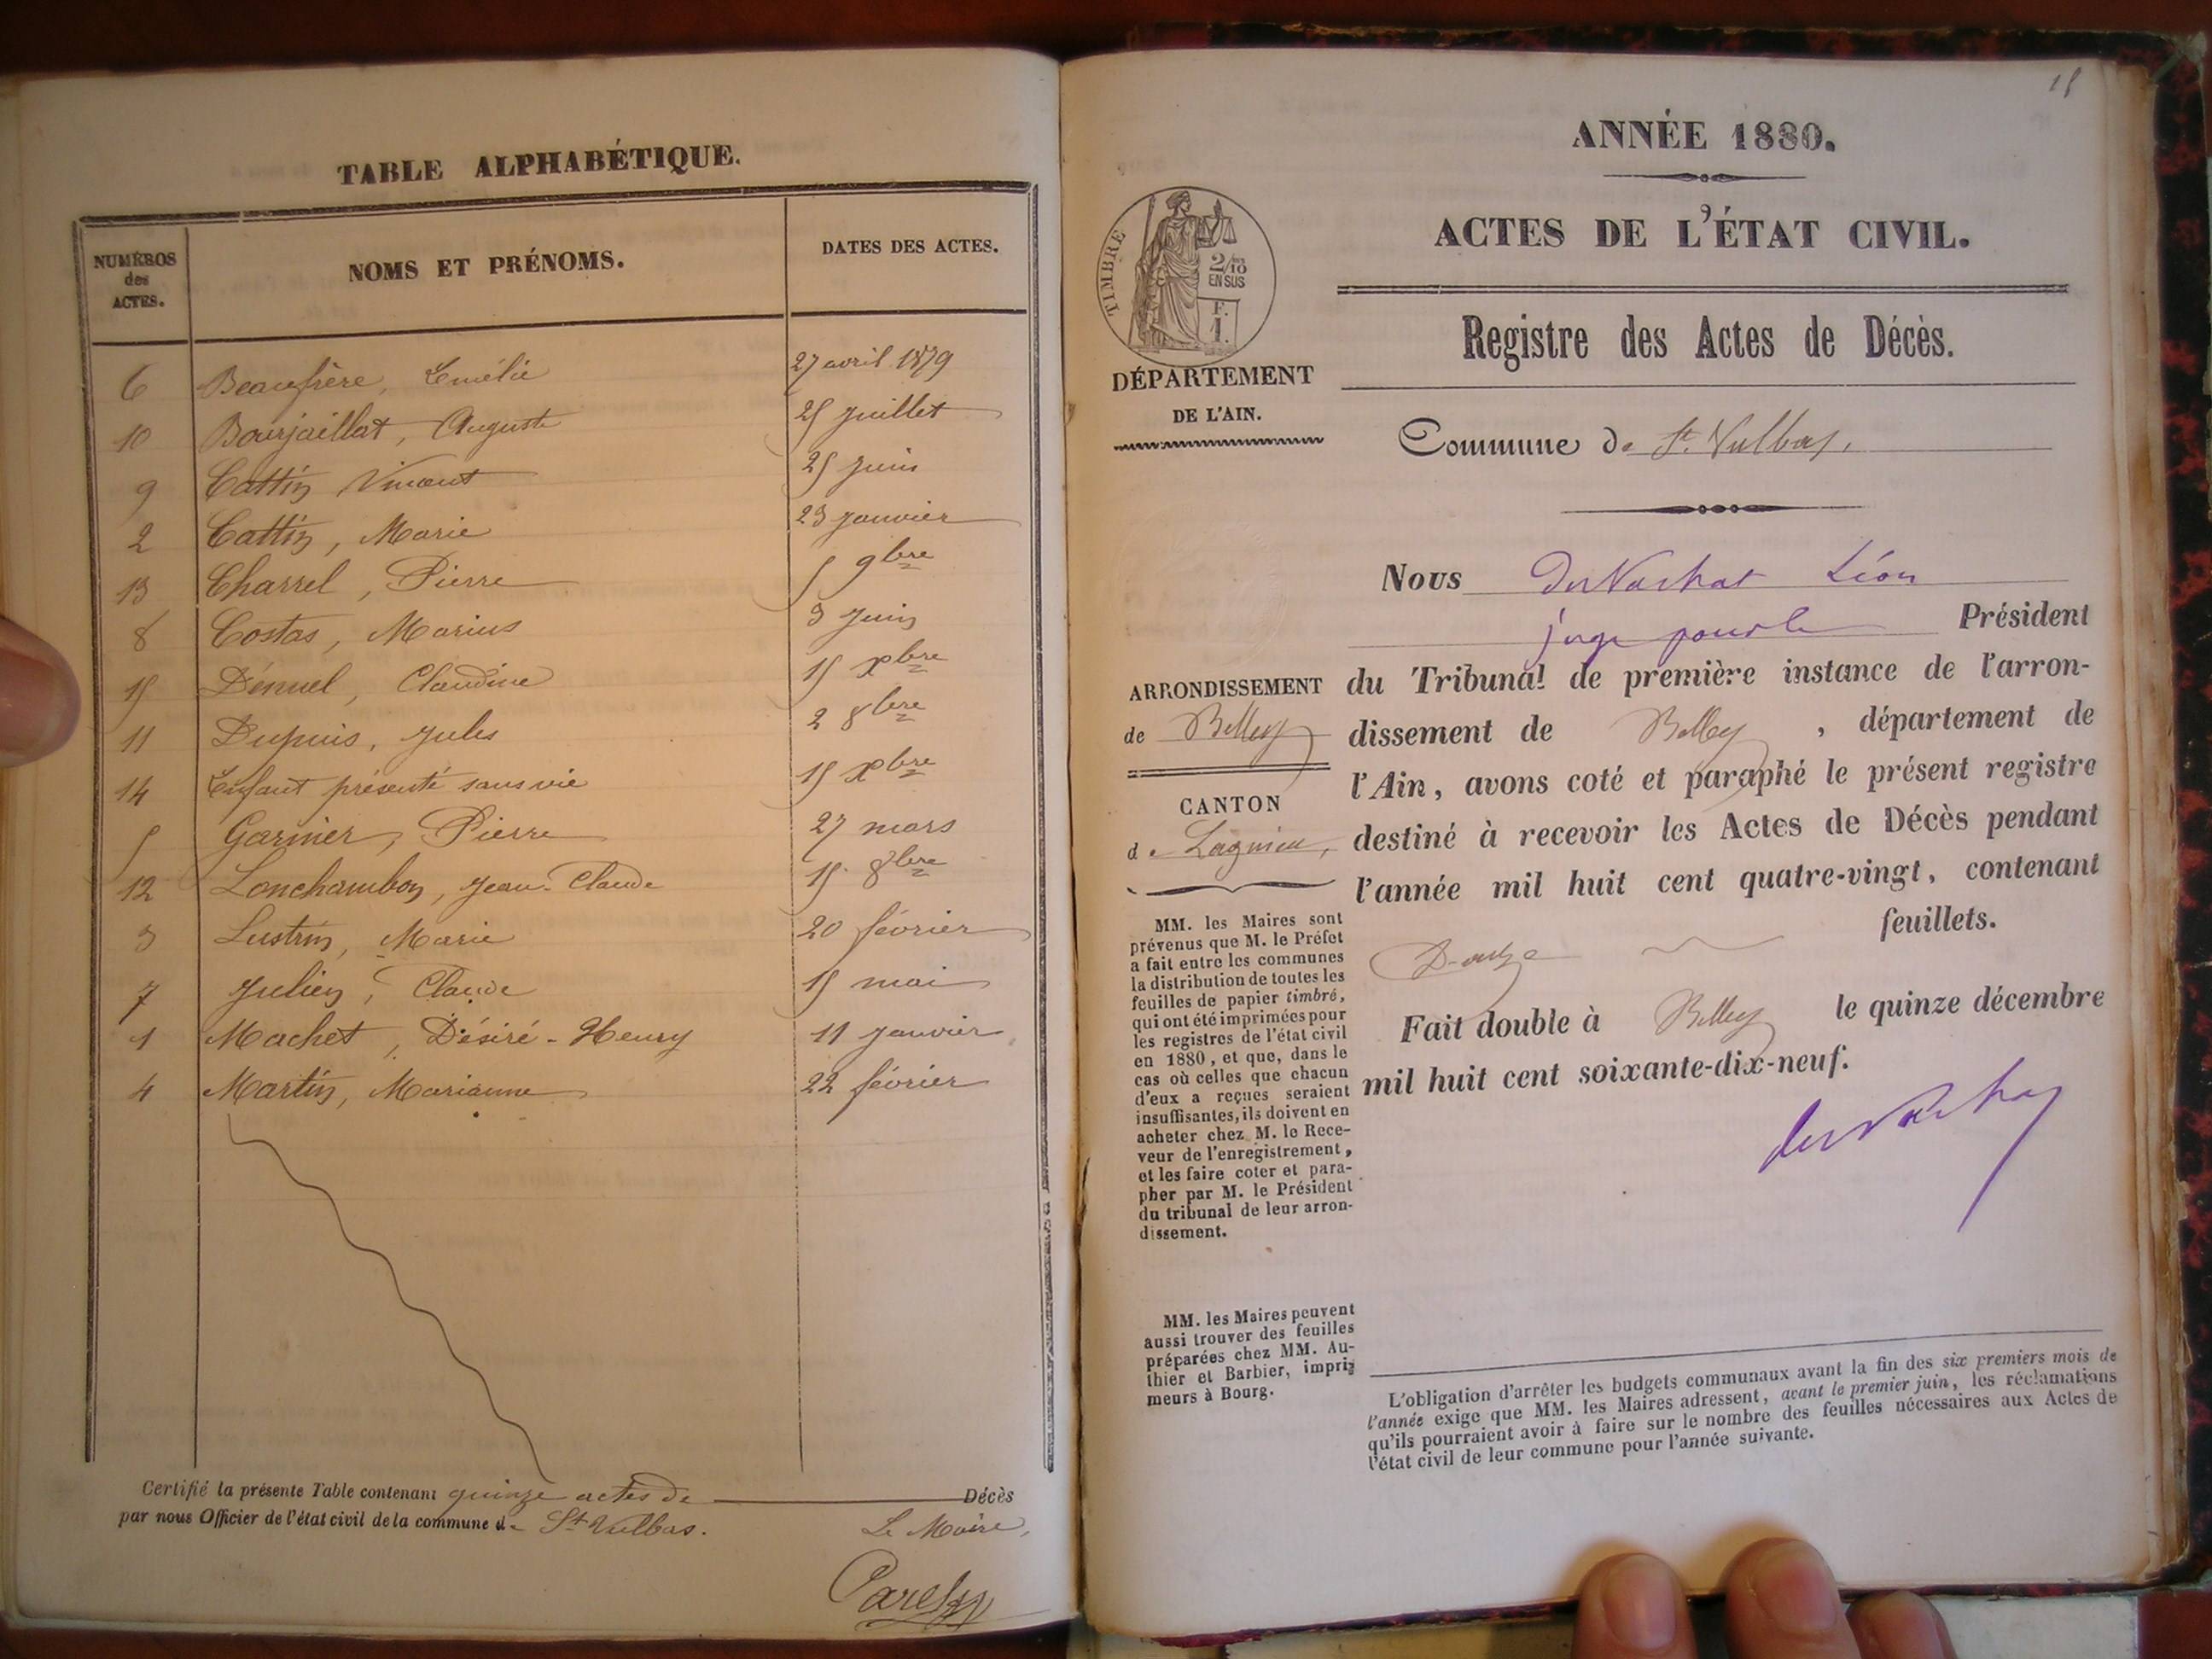 TABLE ALPHABÉTIQUE.
NUMÉROS des ACTES. NOMS ET PRÉNOMS. DATES DES ACTES.
6 Beaufrère, Emélie 27 avril 1879
10 Bourjaillat, Auguste 25 Juillet
9 Cattin Vincent 25 Juin
2 Cattin, Marie 23 Janvier
13 Charrel, Pierre 5 9bre
8 Costas, Marius 3 Juin
15 Claudine 15 Xbre
11 Dupuis, Jules 2 8bre
14 Enfant présenté sans vie 15 Xbre
5 Garnier, Pierre 27 mars
12 Lonchambon, Jean-Claude 15 8bre
3 Lustrin, Marie 20 février
7 Julien, Claude 15 mai
1 Machet, Désiré-Henry 11 Janvier
4 Martin, Marianne 22 février
Certifié la présente Table contenant quinze actes de Décès
par nous Officier de l'état civil de la commune de St Vulbas.
Le Maire,
15
ANNÉE 1880.
ACTES DE L'ÉTAT CIVIL.
TIMBRE
2/10
EN SUS
F.
1.
Registre des Actes de Décès.
DÉPARTEMENT
DE L'AIN.
Commune de St. Vulbas.
Nous Léon
juge pour le Président
du Tribunal de première instance de l'arron-
dissement de Belley, département de
l'Ain, avons coté et paraphé le présent registre
destiné à recevoir les Actes de Décès pendant
l'année mil huit cent quatre-vingt, contenant
Douze feuillets.
Fait double à Belley le quinze décembre
mil huit cent soixante-dix-neuf.
ARRONDISSEMENT
de Belley
CANTON
de Lagnieu,
MM. les Maires sont
prévenus que M. le Préfet
a fait entre les communes
la distribution de toutes les
feuilles de papier timbré,
qui ont été imprimées pour
les registres de l'état civil
en 1880, et que, dans le
cas où celles que chacun
d'eux a reçues seraient
insuffisantes, ils doivent en
acheter chez M. le Rece-
veur de l'enregistrement,
et les faire coter et para-
pher par M. le Président
du tribunal de leur arron-
dissement.
MM. les Maires peuvent
aussi trouver des feuilles
préparées chez MM. Au-
thier et Barbier, impri-
meurs à Bourg.
L'obligation d'arrêter les budgets communaux avant la fin des six premiers mois de
l'année exige que MM. les Maires adressent, avant le premier juin, les réclamations
qu'ils pourraient avoir à faire sur le nombre des feuilles nécessaires aux Actes de
l'état civil de leur commune pour l'année suivante.